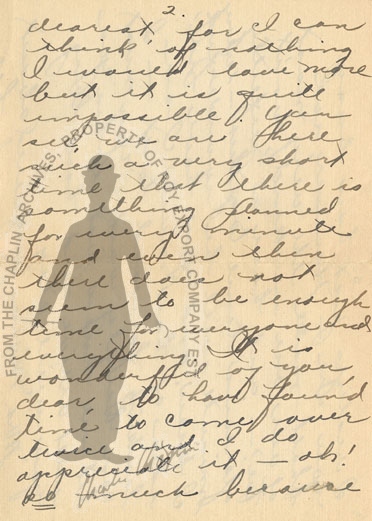 2.
dearest for I can
think of nothing
I would love more
but it is quite
impossible. You
see, we are there
such a very short
time that there is
something planned
for every minute
and even then
there does not
seem to be enough
time for everyone and
everything. It is
wonderful of you
dear to have found
time to come over
twice and I do
appreciate it — oh!
so much because
FROM THE CHAPLIN ARCHIVES. PROPERTY OF ROY EXPORT COMPANY EST
Charlie Chaplin